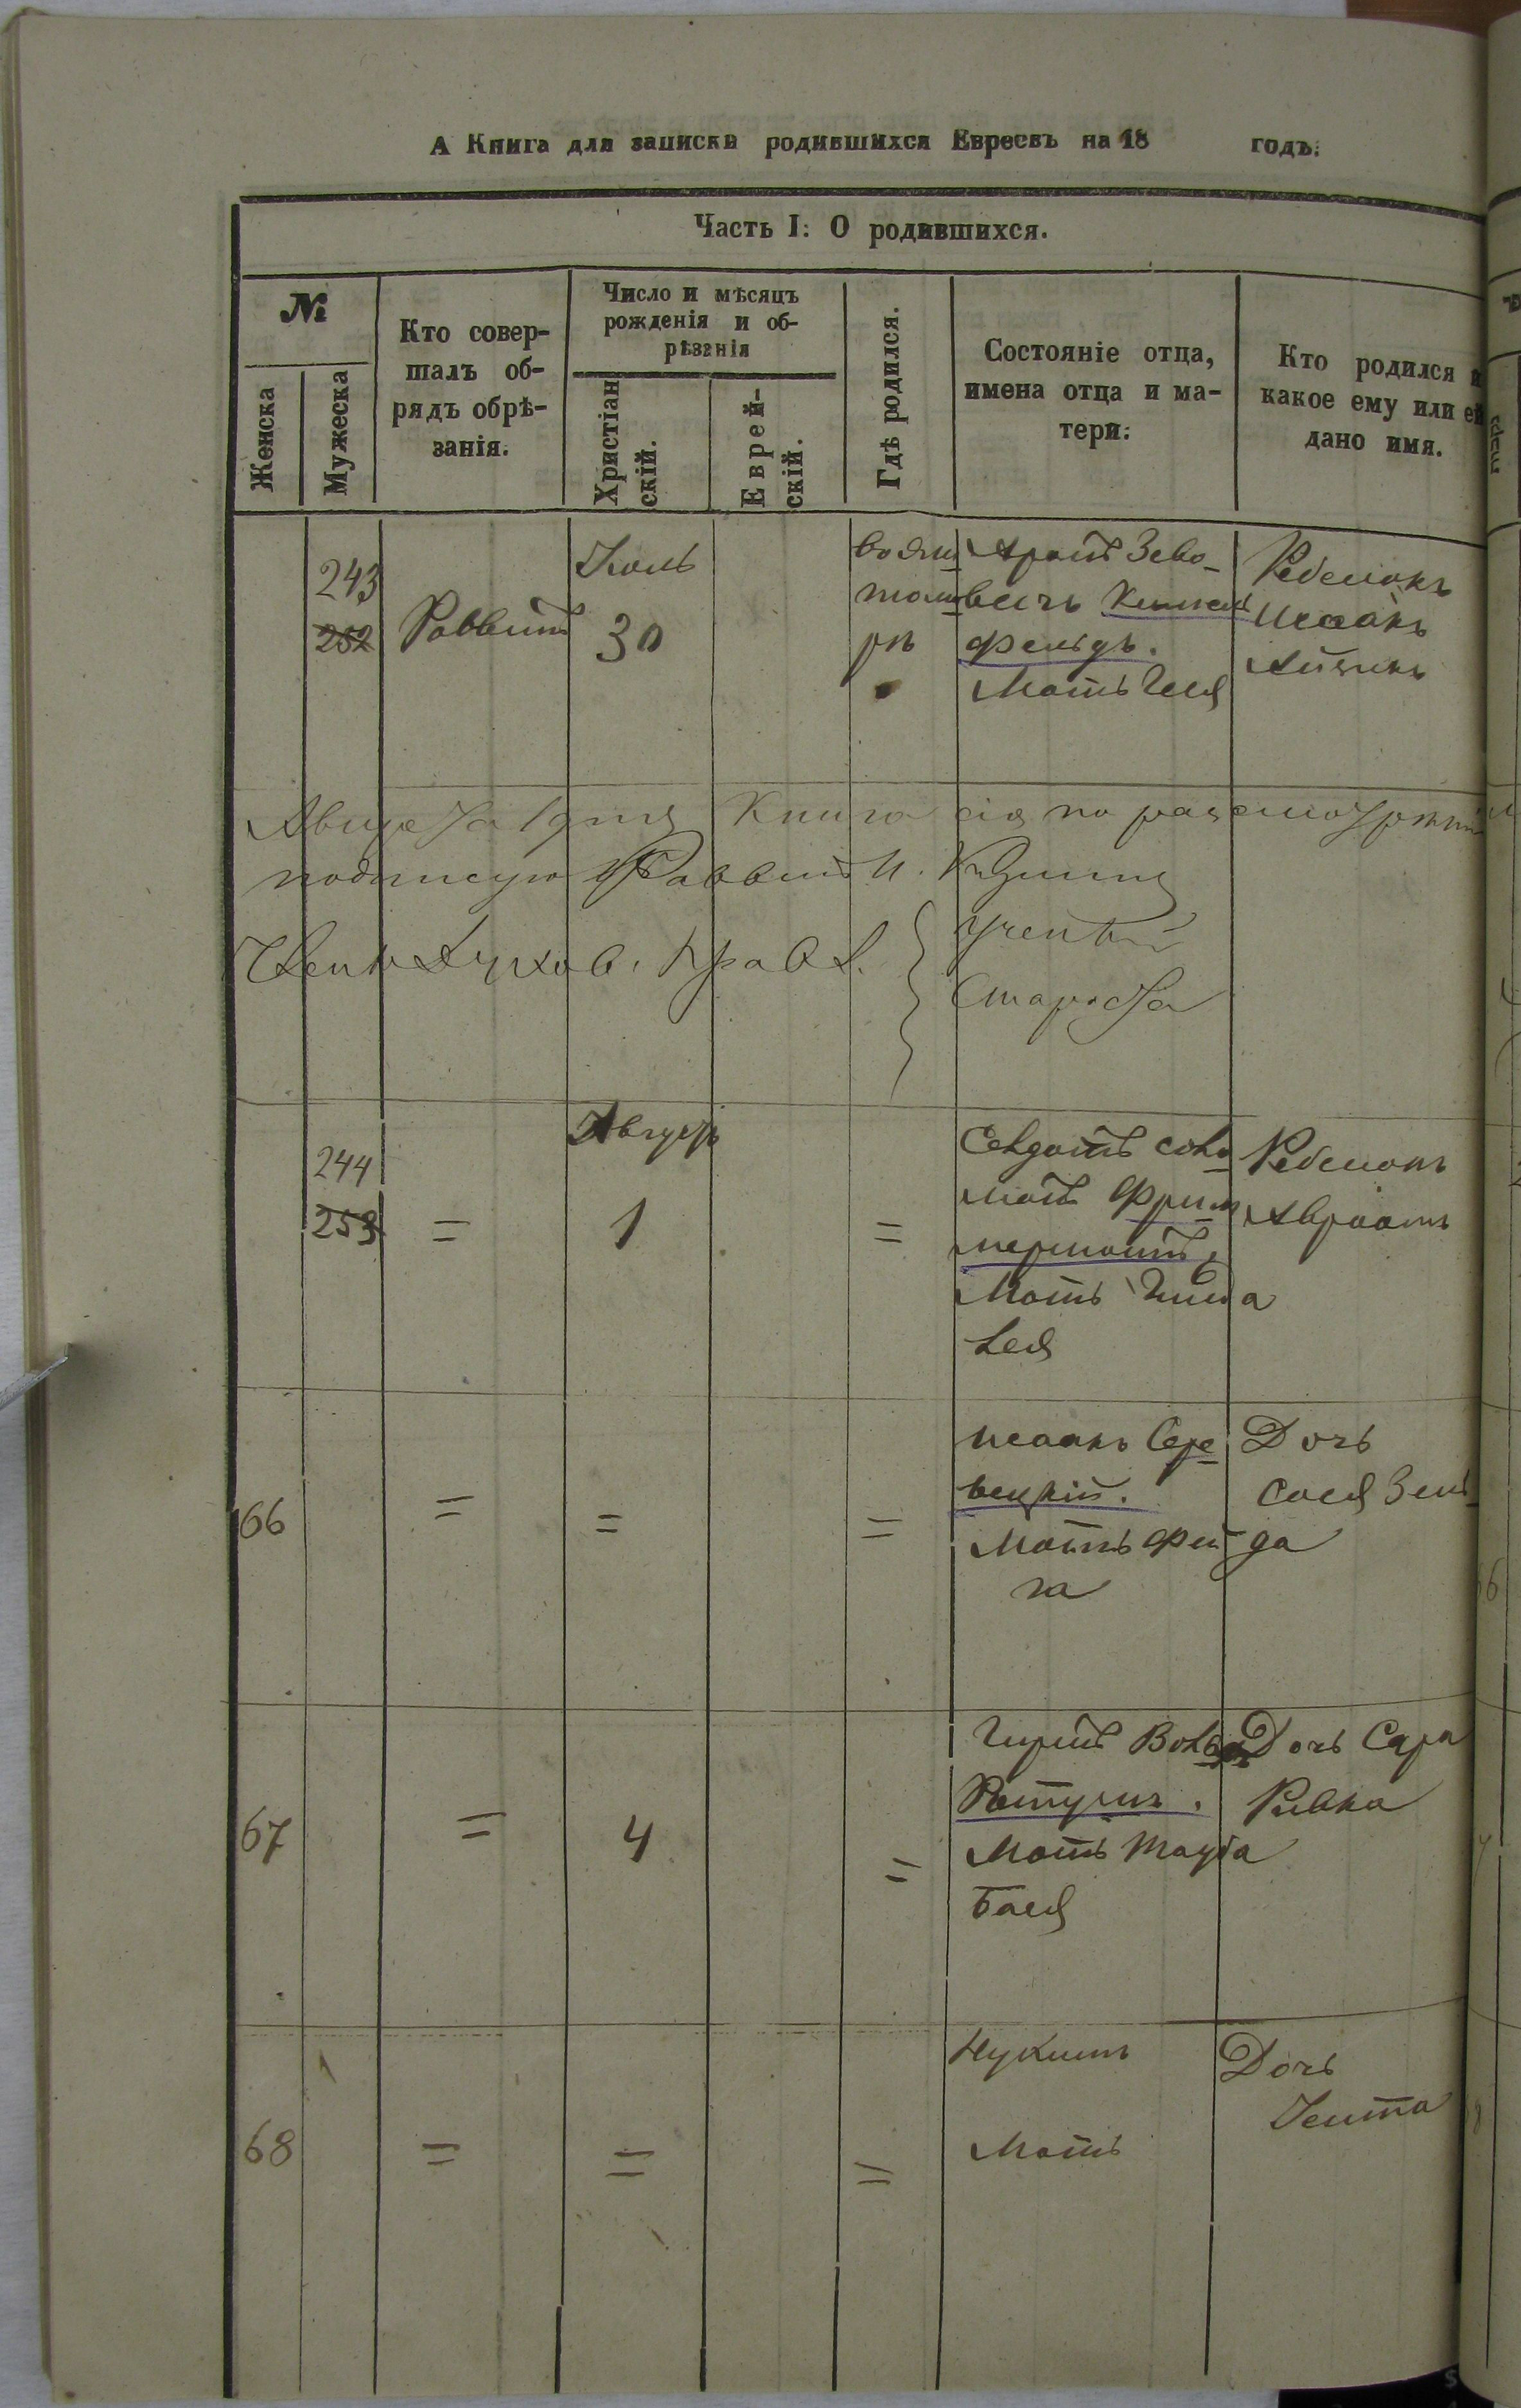 А Книга для записки родившихся Евреевъ на 18 годъ.
Часть I: О родившихся.
№
Женска
Мужеска
Кто совер-
шалъ об-
рядъ обрѣ-
занія.
Число и мѣсяцъ
рожденія и об-
рѣзанія
Христіан
скій.
Еврей-
скій.
Гдѣ родился.
Состояніе отца,
имена отца и ма-
тери.
Кто родился и
какое ему или ей
дано имя.
243
252
Раввинъ
Іюль
30
Аронъ Зево-
вичъ
фельдъ.
Мать
Ребенокъ
Исаакъ
Августа 1 дня Книга сія по разсмотрѣніи
подписую Раввинъ И.
Члены Духов. Правл.
ученый
Староста
244
253
=
Августъ
1
=
Солдатъ Соло
монъ
Мать
Лея
Ребенокъ
Авраамъ
66
=
=
=
Исаакъ Сере
вецкій.
Мать Фей
га
Дочь
Сося Зель
да
67
=
4
=
Мать Тауба
Бася
Дочь Сара
Ривка
68
=
=
=
Мать
Дочь
Іента